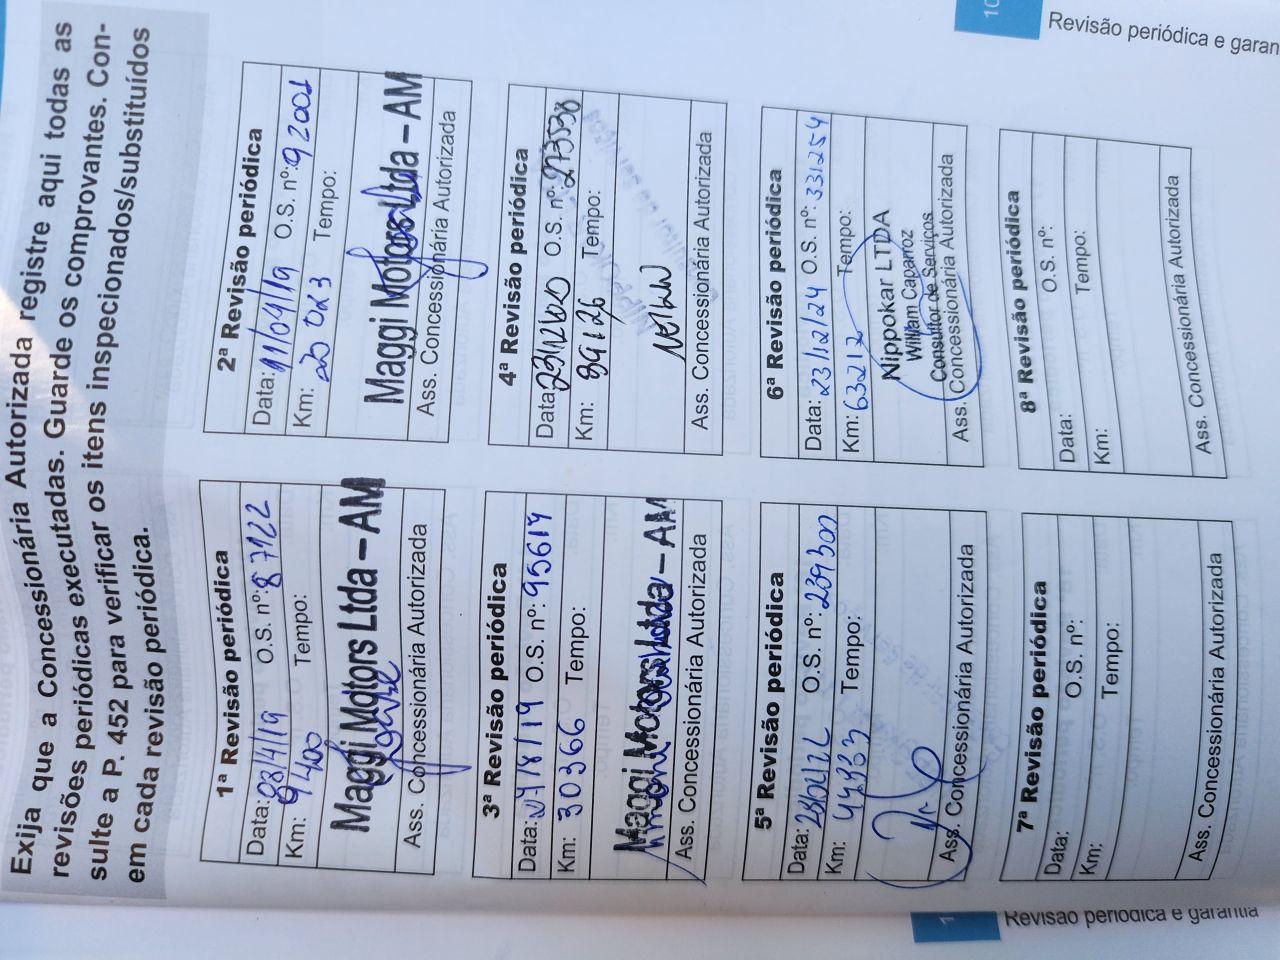 Exija que a Concessionária Autorizada registre aqui todas as
revisões periódicas executadas. Guarde os comprovantes. Con-
sulte a P. 452 para verificar os itens inspecionados/substituídos
em cada revisão periódica.
1ª Revisão periódica
Data: 08/4/19 O.S. nº: 87122
Km: 9400 Tempo:
Maggi Motors Ltda – AM
Ass. Concessionária Autorizada
2ª Revisão periódica
Data: 11/04/19 O.S. nº: 92001
Km: 20 023 Tempo:
Maggi Motors Ltda – AM
Ass. Concessionária Autorizada
3ª Revisão periódica
Data: /8/19 O.S. nº: 95614
Km: 30366 Tempo:
Maggi Motors Ltda – AM
Ass. Concessionária Autorizada
4ª Revisão periódica
Data: O.S. nº: 273538
Km: 39126 Tempo:
Ass. Concessionária Autorizada
5ª Revisão periódica
Data: O.S. nº: 239300
Km: Tempo:
Ass. Concessionária Autorizada
6ª Revisão periódica
Data: 23/12/24 O.S. nº: 331254
Km: 63212 Tempo:
Nippokar LTDA
William Caparroz
Consultor de Serviços
Ass. Concessionária Autorizada
7ª Revisão periódica
Data: O.S. nº:
Km: Tempo:
Ass. Concessionária Autorizada
8ª Revisão periódica
Data: O.S. nº:
Km: Tempo:
Ass. Concessionária Autorizada
10
Revisão periódica e garan
1
Revisão periódica e garantia